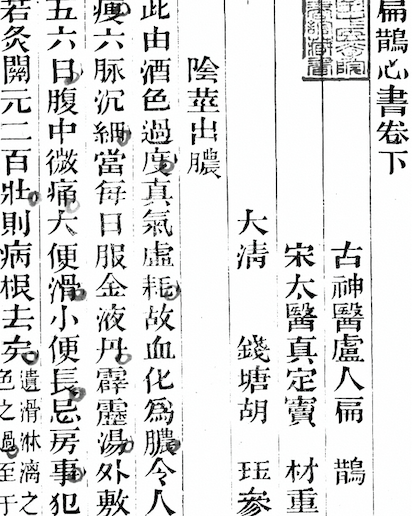 扁鵲心書卷下
古神醫盧人扁 鵲
宋太醫真定竇 材重
大清 錢塘胡 珏參
陰莖出膿
此由酒色過度真氣虛耗故血化爲膿令人
瘦六脉沉細當每日服金液丹霹靂湯外敷
五六日腹中微痛大便滑小便長忌房事犯
若灸關元二百壯則病根去矣
遺滑淋漓之
色之過至于